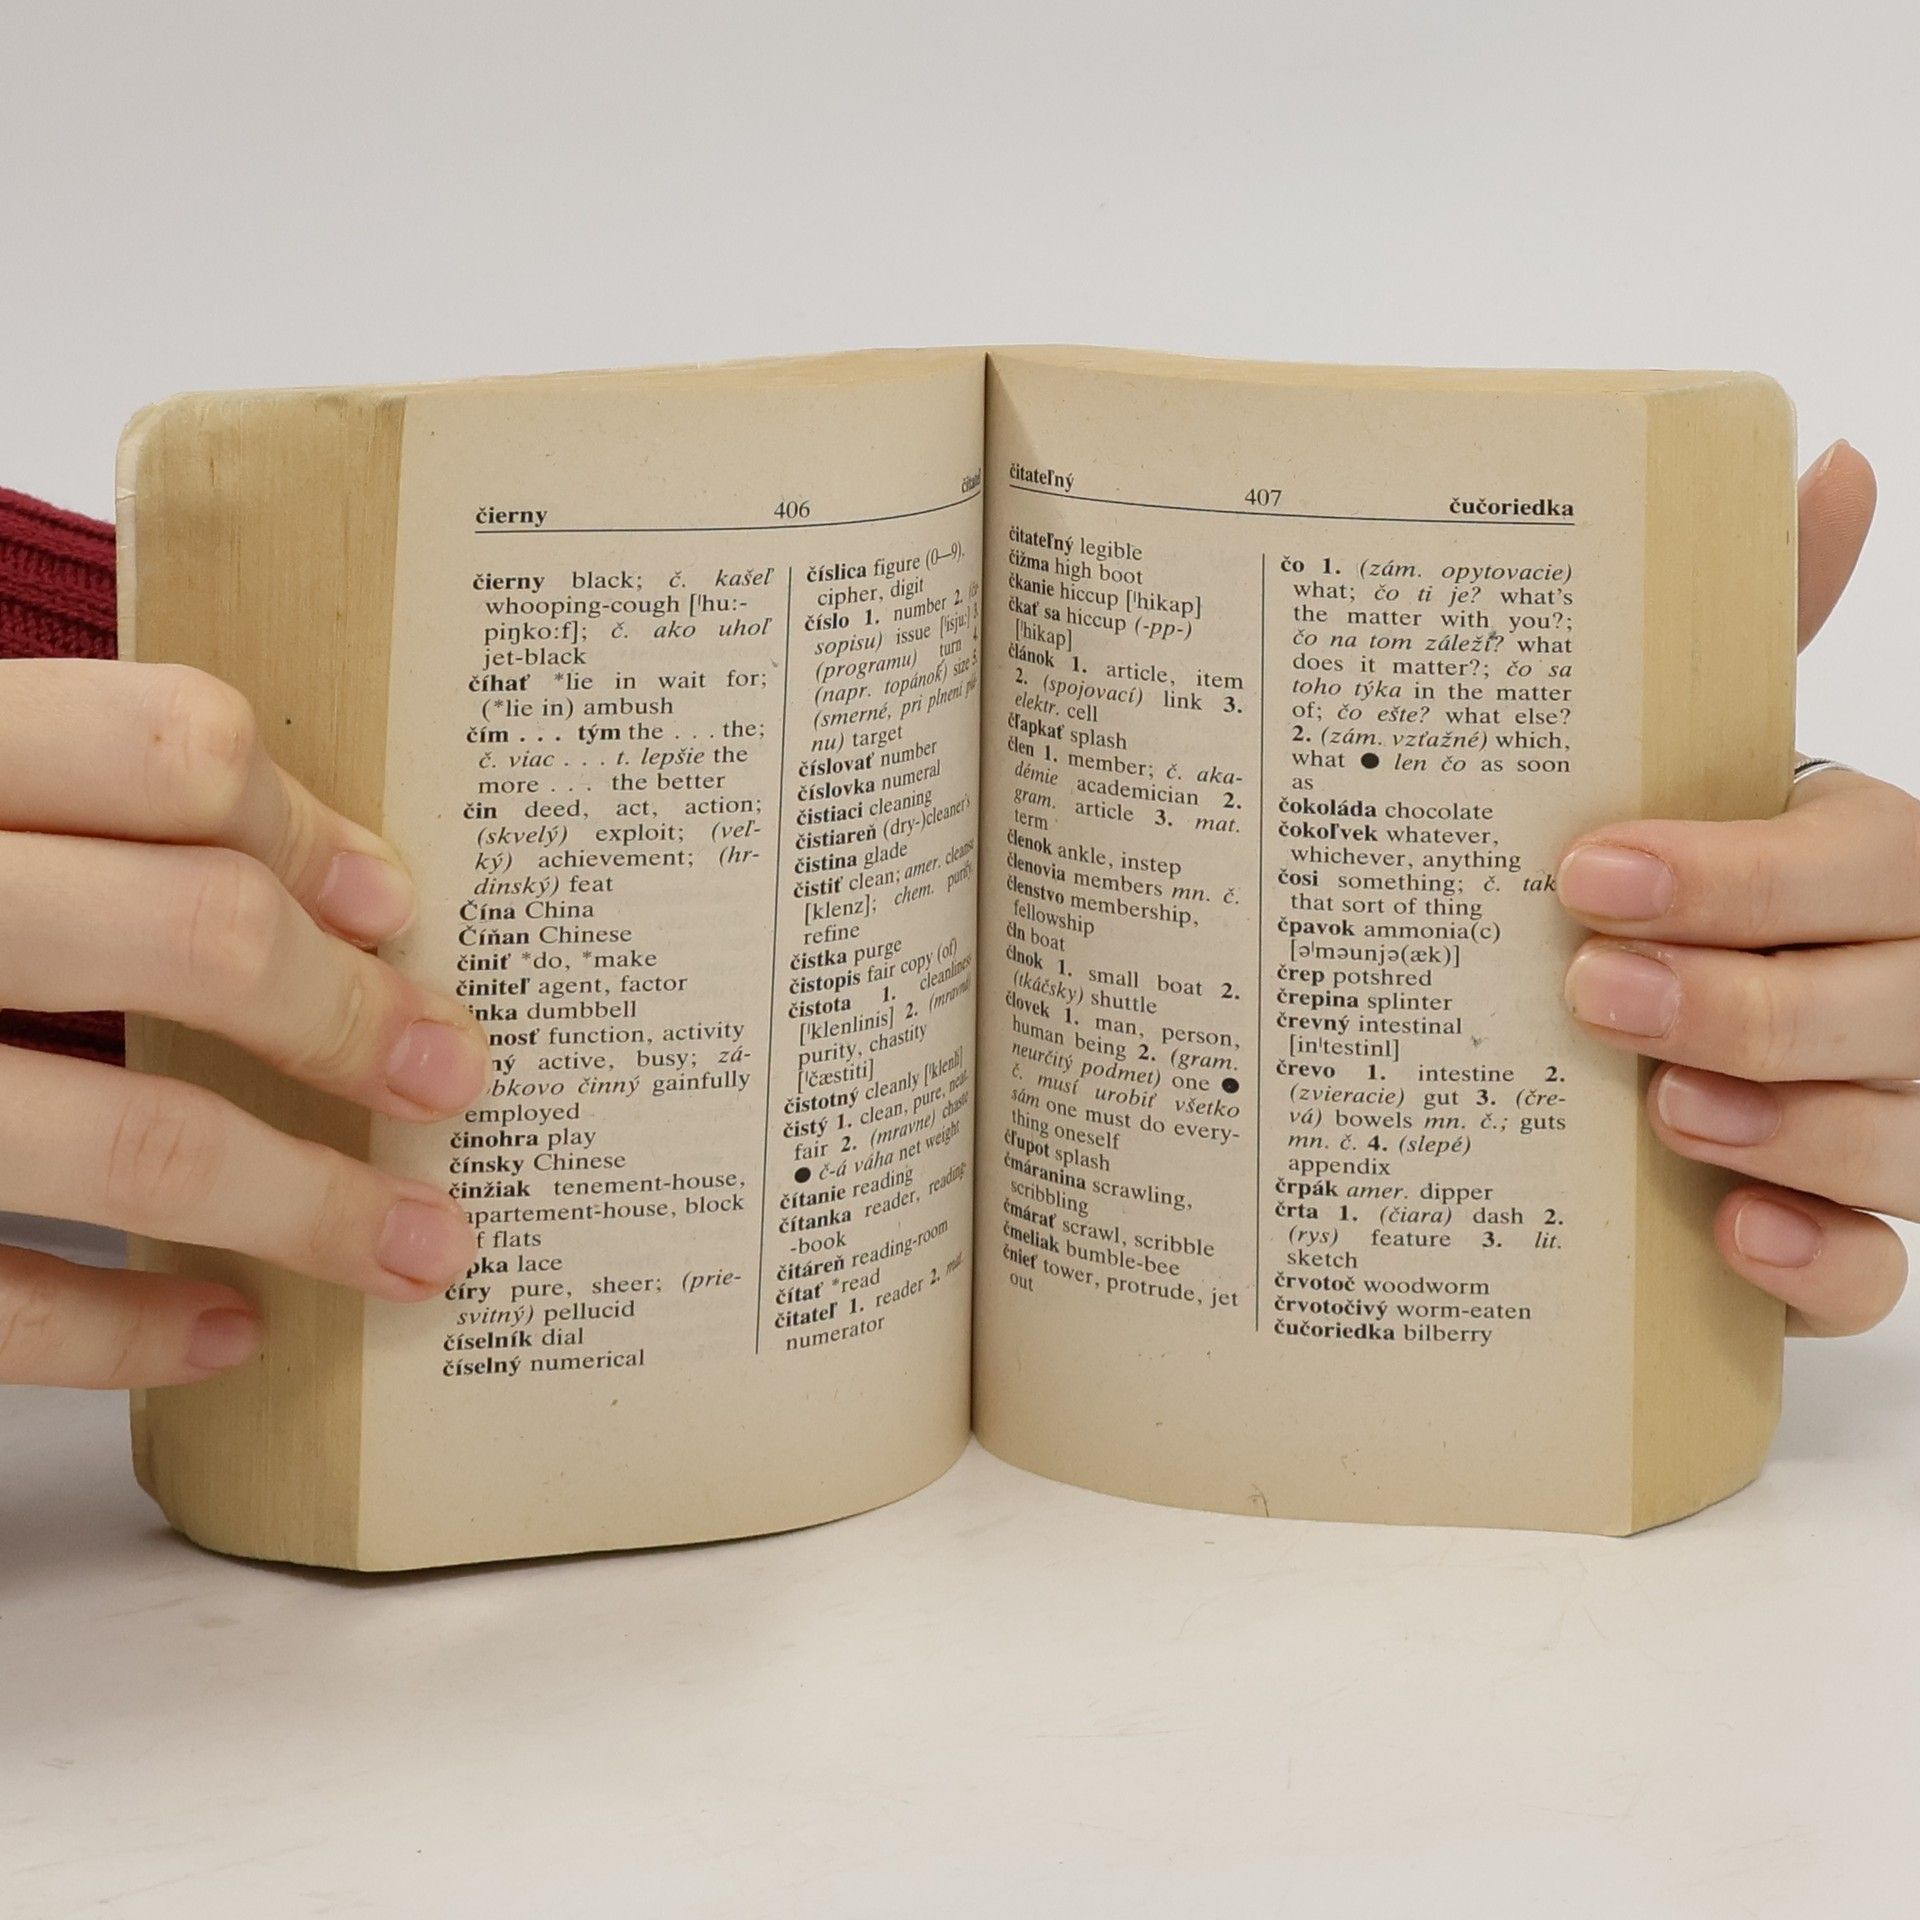 čierny
406
čierny black; č. kašeľ
whooping-cough [ˈhu:-
piŋko:f]; č. ako uhoľ
jet-black
číhať *lie in wait for;
(*lie in) ambush
čím . . . tým the . . . the;
č. viac . . . t. lepšie the
more . . . the better
čin deed, act, action;
(skvelý) exploit; (veľ-
ký) achievement; (hr-
dinský) feat
Čína China
Číňan Chinese
činiť *do, *make
činiteľ agent, factor
dumbbell
function, activity
active, busy; zá-
činný gainfully
employed
činohra play
čínsky Chinese
činžiak tenement-house,
apartement-house, block
flats
lace
číry pure, sheer; (prie-
svitný) pellucid
číselník dial
číselný numerical
číslica figure (0—9),
cipher, digit
číslo 1. number 2.
sopisu) issue [ˈisju:] 3.
(programu) turn 4.
(napr. topánok) size 5.
(smerné, pri plnení
nu) target
číslovať number
číslovka numeral
čistiaci cleaning
čistiareň (dry-)cleaner's
čistina glade
čistiť clean; amer. cleanse
[klenz]; chem. purify,
refine
čistka purge
čistopis fair copy (of)
čistota 1. cleanliness
[ˈklenlinis] 2. (mravná)
purity, chastity
[ˈčæstiti]
čistotný cleanly [ˈklenli]
čistý 1. clean, pure, neat,
fair 2. (mravne) chaste
● č-á váha net weight
čítanie reading
čítanka reader, reading-
-book
čitáreň reading-room
čítať *read
čitateľ 1. reader 2. mat.
numerator
čitateľný
407
čučoriedka
čitateľný legible
čižma high boot
čkanie hiccup [ˈhikap]
čkať sa hiccup (-pp-)
[ˈhikap]
článok 1. article, item
2. (spojovací) link 3.
elektr. cell
čľapkať splash
člen 1. member; č. aka-
démie academician 2.
gram. article 3. mat.
term
členok ankle, instep
členovia members mn. č.
členstvo membership,
fellowship
čln boat
člnok 1. small boat 2.
(tkáčsky) shuttle
človek 1. man, person,
human being 2. (gram.
neurčitý podmet) one ●
č. musí urobiť všetko
sám one must do every-
thing oneself
čľupot splash
čmáranina scrawling,
scribbling
čmárať scrawl, scribble
čmeliak bumble-bee
čnieť tower, protrude, jet
out
čo 1. (zám. opytovacie)
what; čo ti je? what's
the matter with you?;
čo na tom záleží? what
does it matter?; čo sa
toho týka in the matter
of; čo ešte? what else?
2. (zám. vzťažné) which,
what ● len čo as soon
as
čokoláda chocolate
čokoľvek whatever,
whichever, anything
čosi something; č. tak
that sort of thing
čpavok ammonia(c)
[əˈməunjə(æk)]
črep potshred
črepina splinter
črevný intestinal
[inˈtestinl]
črevo 1. intestine 2.
(zvieracie) gut 3. (čre-
vá) bowels mn. č.; guts
mn. č. 4. (slepé)
appendix
črpák amer. dipper
črta 1. (čiara) dash 2.
(rys) feature 3. lit.
sketch
črvotoč woodworm
črvotočivý worm-eaten
čučoriedka bilberry